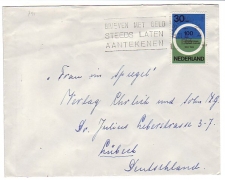 BRIEVEN MET GELD
STEEDS LATEN
AANTEKENEN
30
100
NEDERLAND
"Frau im Spegel"
Verlag Ehrlich und Sohn
Dr. Julius Leberstrasse 3-7.
Lübeck
Deutschland.